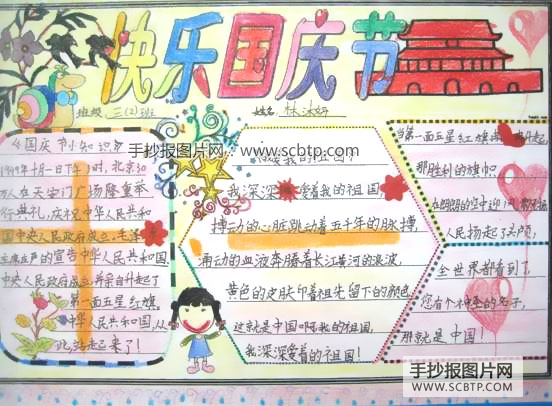 快乐国庆节
班级：三(2)班
姓名：林冰婷
手抄报图片网
www.scbtp.com
《国庆节小知识》
1949年十月一日下午3时，北京30
万人在天安门广场隆重举
行典礼，庆祝中华人民共和
国中央人民政府成立。毛泽东
主席庄严的宣告中华人民共和国、
中央人民政府成立，并亲自升起了
第一面五星红旗。
中华人民共和国，从
此站起来了！
爱我的祖国！
我深深爱着我的祖国
搏动的心脏跳动着五千年的脉搏，
涌动的血液奔腾着长江黄河的浪波，
黄色的皮肤印着祖先留下的颜色，
这就是中国啊我的祖国，
我深深爱着的祖国！
当第一面五星红旗升起，
那胜利的旗帜
人民扬起了头颅，
全世界都看到了，
您有个神圣的名字，
那就是中国！
手抄报图片网
WWW.SCBTP.COM